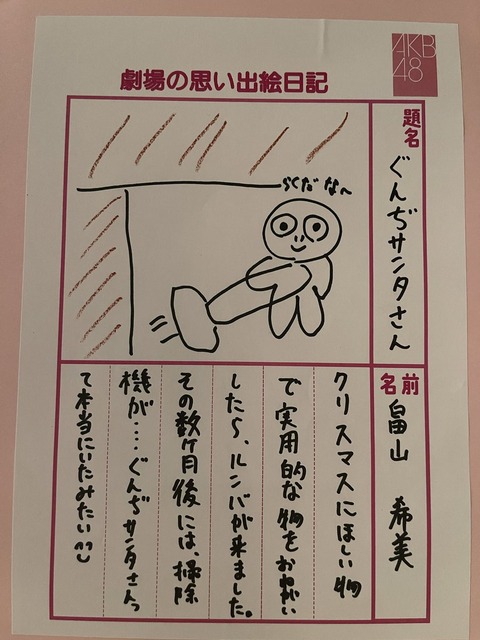 AKB
48
劇場の思い出絵日記
題名
ぐんぢサンタさん
らくだな〜
名前
畠山 希美
クリスマスにほしい物
で実用的な物をおねがい
した〜、ルンバが来ました。
その数ヶ月後には、掃除
機が....ぐんぢサンタさんっ
て本当にいたみたい